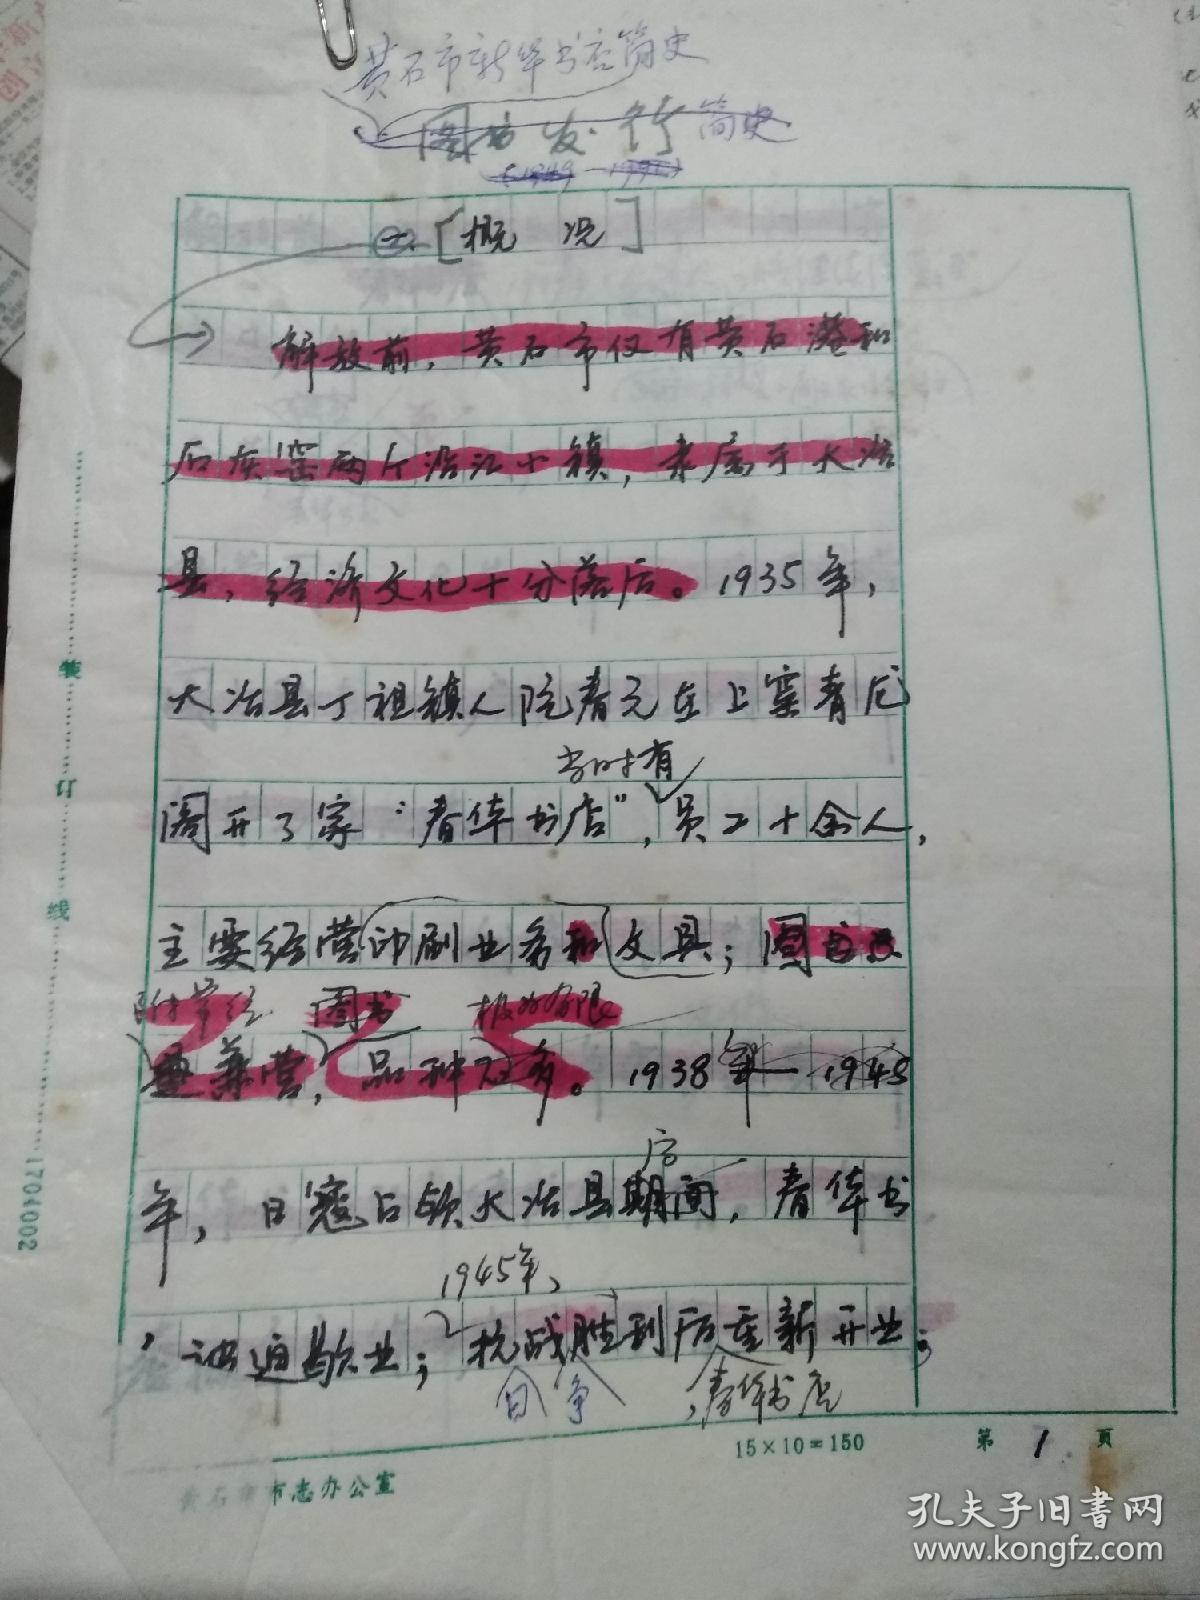 黄石市新华书店简史
图书发行简史
(1949—1990)
[概 况]
解放前，黄石市仅有黄石港和
石灰窑两个沿江小镇，隶属于大冶
县，经济文化十分落后。1935年，
大冶县丁祖镇人阮春元在上窑青龙
当时有
阁开了家“春华书店”，员工十余人，
主要经营印刷业务和文具；图书
附带经 图书 极为有限
兼营，品种不多。1938年—1945
后
年，日寇占领大冶县期间，春华书
1945年、
被迫歇业；抗战胜利后重新开业；
日 争 ，春华书店
装
订
线
1704002
15×10=150
第 1 页
黄石市市志办公室
孔夫子旧书网
www.kongfz.com